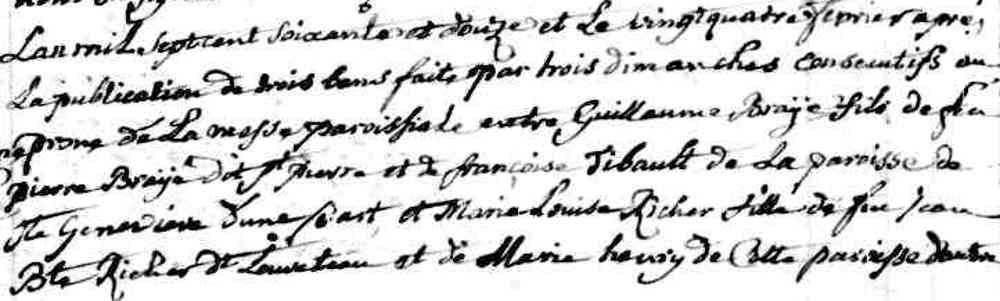 Lan mil Sept cent Soixante et douze et Le vingt quatre fevrier apres
La publication de trois bans faite par trois dimanches consecutifs au
prone de La messe paroissiale entre Guillaume Braye fils de feu
pierre Braye dit St pierre et de françoise Tibault de La paroisse de
Ste Genevieve dune part et Marie Louise Richer fille de feu Jean
Bte Richer dt Louveteau et de Marie henry de Cette paroisse dautre